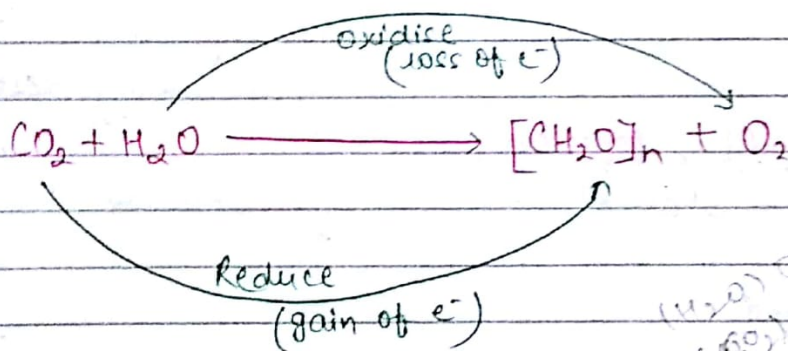 oxidise
(loss of e⁻)
CO₂ + H₂O ⟶ [CH₂O]ₙ + O₂
Reduce
(gain of e⁻)
(H₂O)